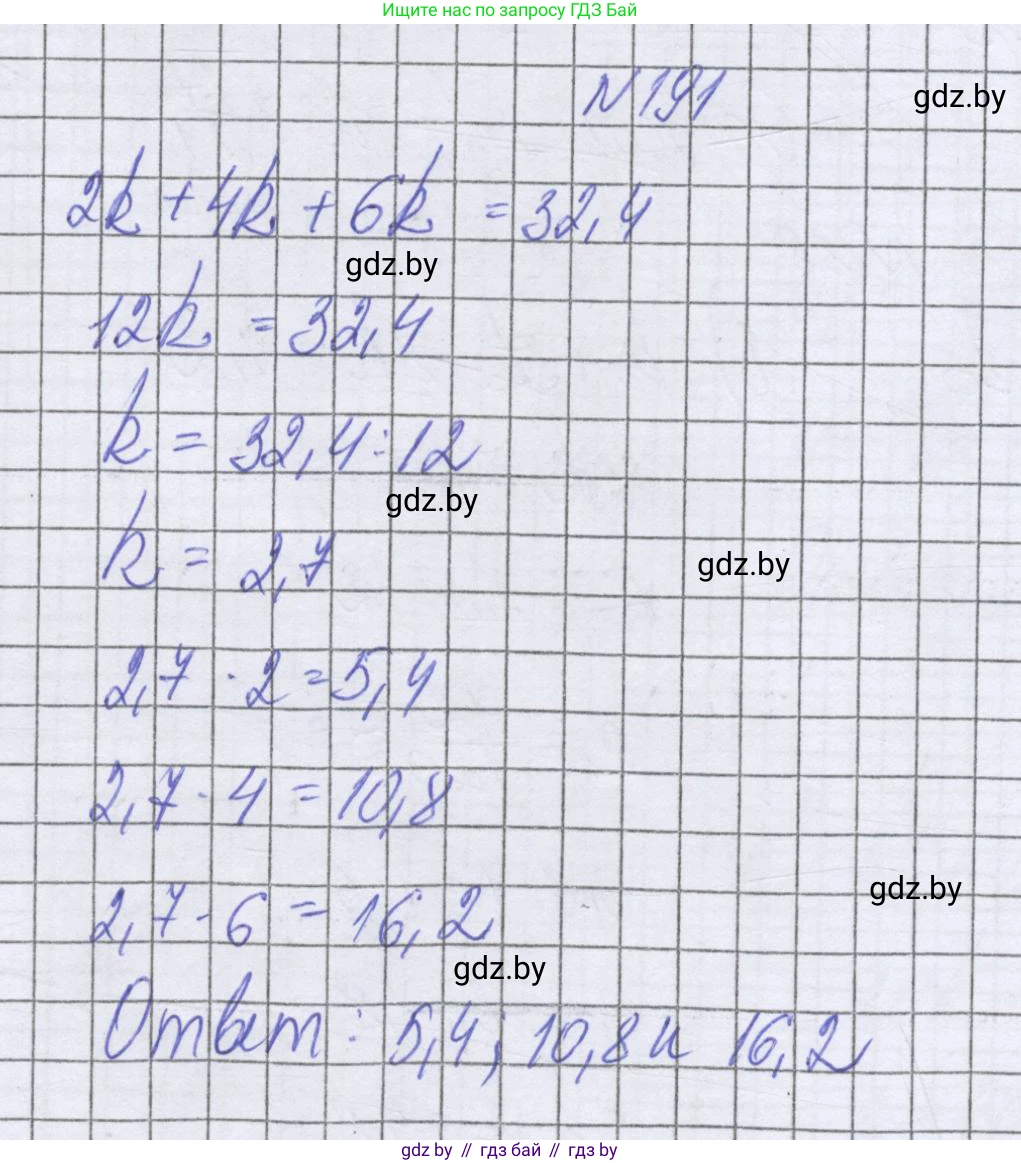 Ищите нас по запросу ГДЗ Бай
N191
gdz.by
2k + 4k + 6k = 32,4
gdz.by
12k = 32,4
k = 32,4 : 12
gdz.by
k = 2,7
gdz.by
2,7 · 2 = 5,4
2,7 · 4 = 10,8
2,7 · 6 = 16,2
gdz.by
gdz.by
Ответ: 5,4, 10,8 и 16,2
gdz.by // гдз бай // gdz.by